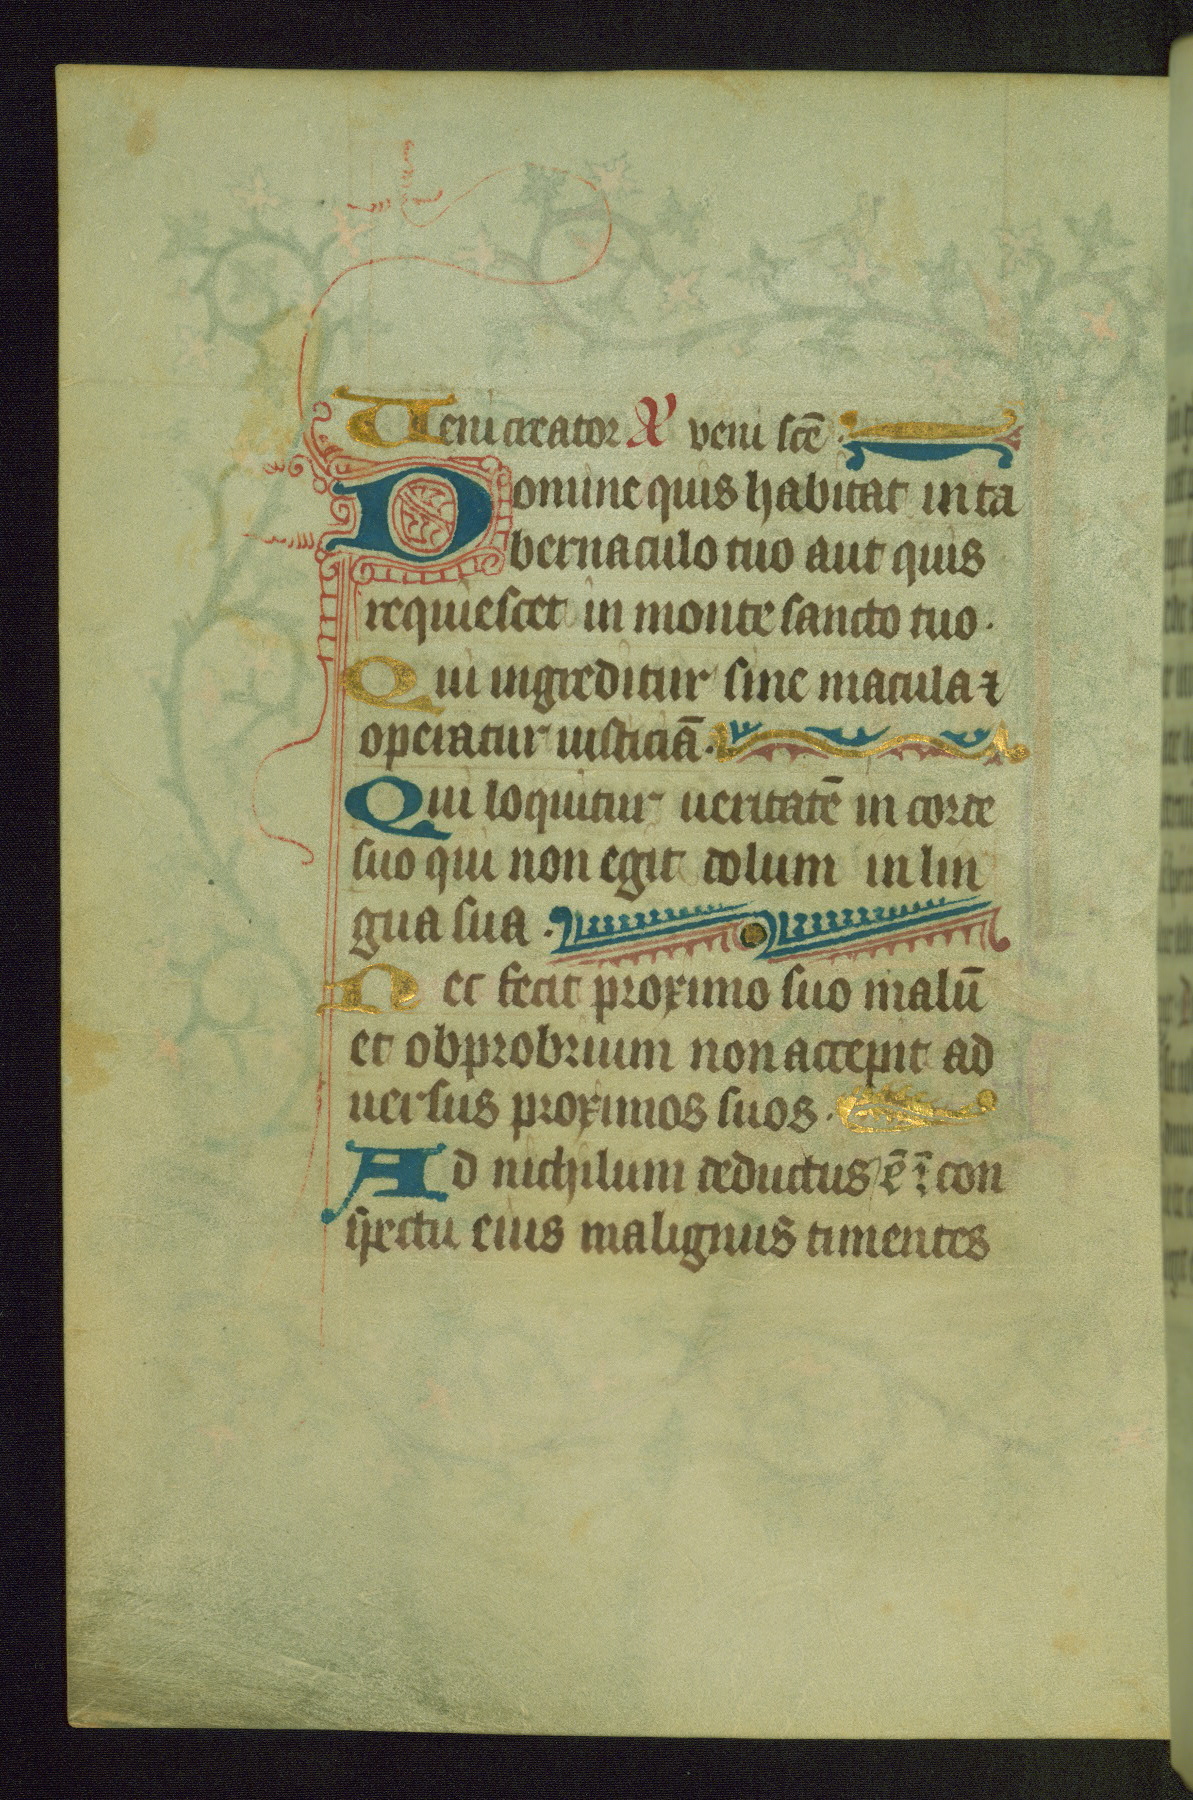 Veni creator A veni scē
Domine quis habitat in ta
bernaculo tuo aut quis
requiescet in monte sancto tuo.
Qui ingreditur sine macula ⁊
operatur iusticiā.
Qui loquitur ueritatē in corde
suo qui non egit dolum in lin
gua sua.
Nec fecit proximo suo malū
et obprobrium non accepit ad
uersus proximos suos.
Ad nichilum deductus ē ī con
spectu eius malignus timentes